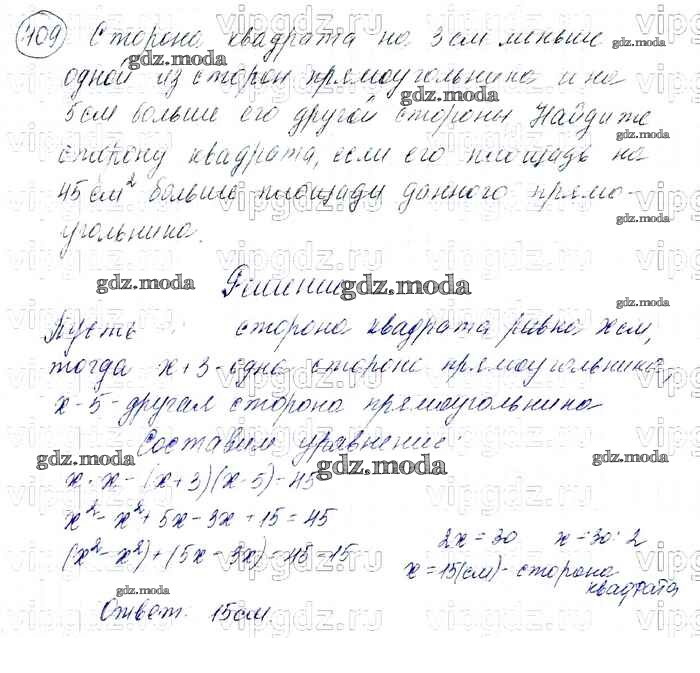 409 Сторона квадрата на 3 см меньше
одной из сторон прямоугольника и на
5 см больше его другой стороны Найдите
сторону квадрата, если его площадь на
45 см² больше площади данного прямо-
угольника.
Решение
Пусть сторона квадрата равна x см,
тогда x+3 - одна сторона прямоугольника,
x-5 - другая сторона прямоугольника
Составим уравнение:
x·x-(x+3)(x-5)=45
x²-x²+5x-3x+15=45
(x²-x²)+(5x-3x)=45-15
2x=30 x=30:2
x=15(см)- сторона
квадрата
Ответ. 15 см.
gdz.moda
vipgdz.ru